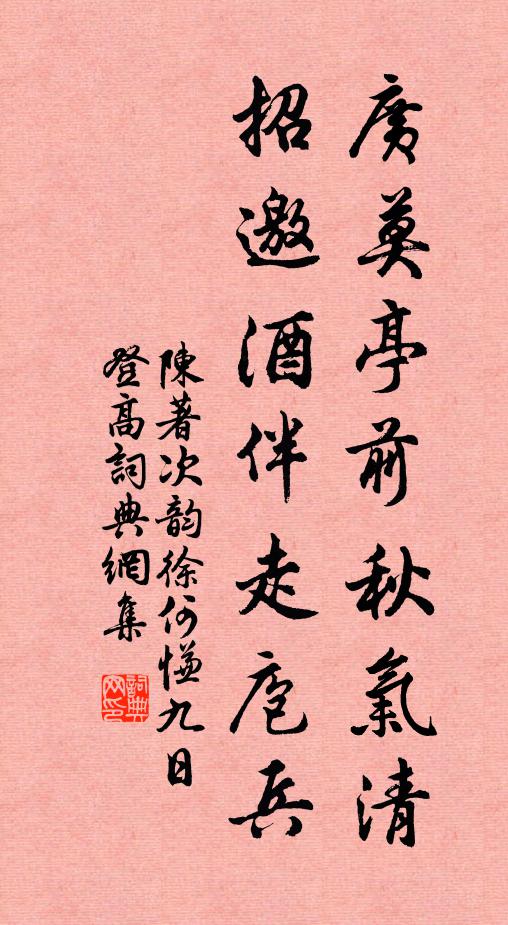 廣莫亭前秋氣清
招邀酒伴走庖兵
陳著次韵徐何慊九日
登高詞典網集
詞典網印